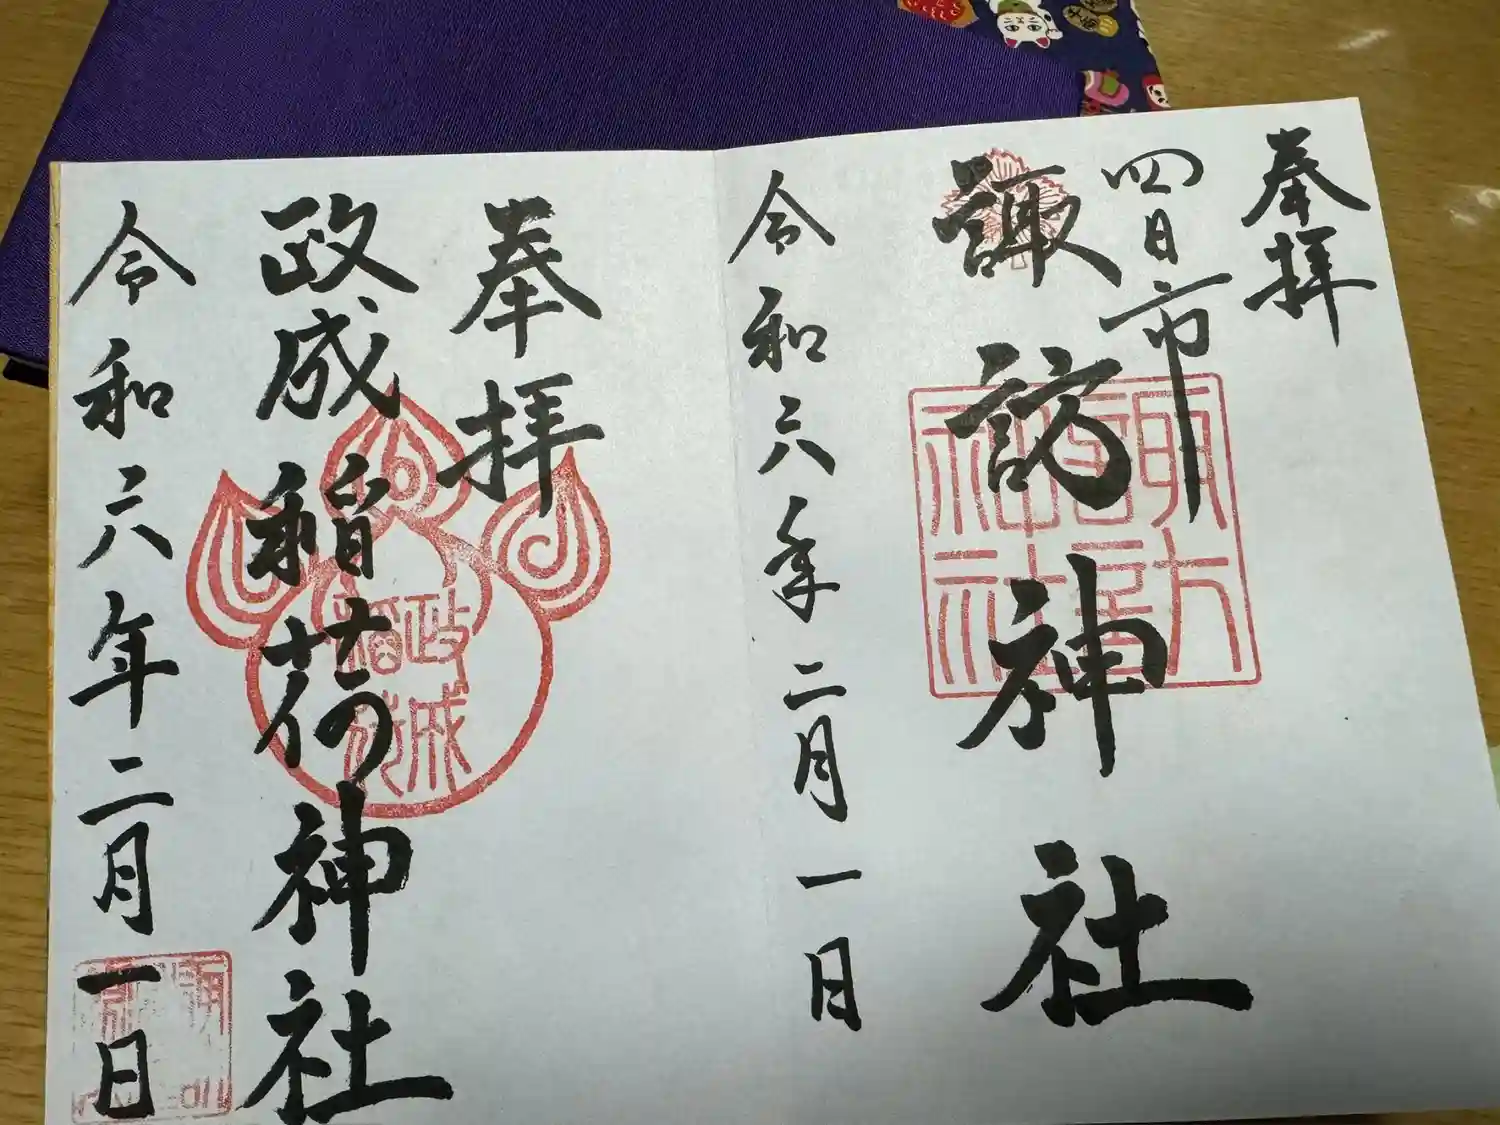 奉拝
四日市
諏訪神社
令和六年二月一日
諏訪神社
奉拝
政成稲荷神社
令和六年二月一日